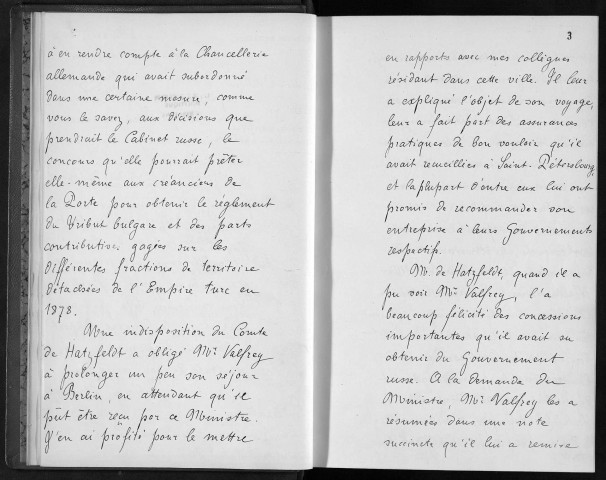 à en rendre compte à la Chancellerie
allemande qui avait subordonné
dans une certaine mesure, comme
vous le savez, aux décisions que
prendrait le Cabinet russe, le
concours qu'elle pourrait prêter
elle-même aux créanciers de
la Porte pour obtenir le règlement
du Tribut bulgare et des parts
contributives gagées sur les
différentes fractions de territoire
détachées de l'Empire turc en
1878.
Une indisposition du Comte
de Hatzfeldt a obligé Mr Valfrey
à prolonger un peu son séjour
à Berlin, en attendant qu'il
pût être reçu par ce Ministre.
J'en ai profité pour le mettre
3
en rapports avec mes collègues
résidant dans cette ville. Il leur
a expliqué l'objet de son voyage,
leur a fait part des assurances
pratiques de bon vouloir qu'il
avait recueillies à Saint-Pétersbourg,
et la plupart d'entre eux lui ont
promis de recommander son
entreprise à leurs Gouvernements
respectifs.
M. de Hatzfeldt, quand il a
pu voir Mr Valfrey, l'a
beaucoup félicité des concessions
importantes qu'il avait su
obtenir du Gouvernement
russe. A la demande du
Ministre, Mr Valfrey les a
résumées dans une note
succincte qu'il lui a remise